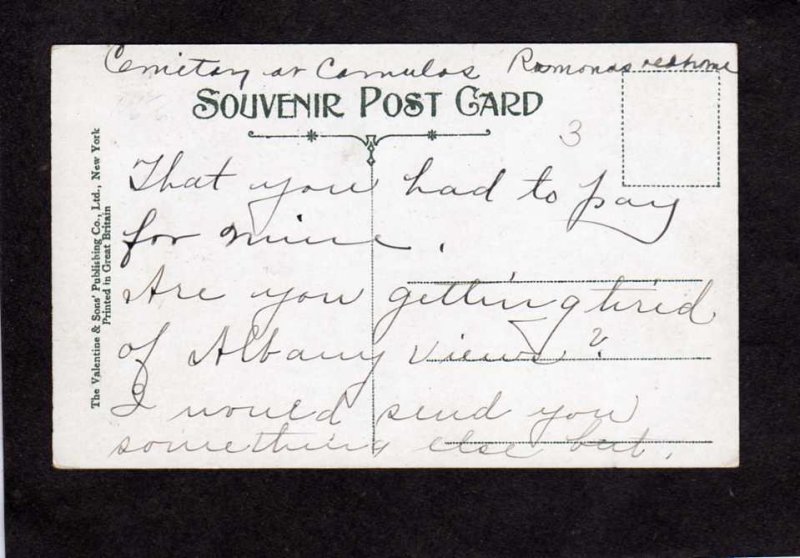 Cemetary at Camulos Ramonas old home
SOUVENIR POST CARD
3
That you had to pay
for mine.
Are you getting tired
of Albany views?
I would send you
something else but.
The Valentine & Sons' Publishing Co., Ltd., New York
Printed in Great Britain